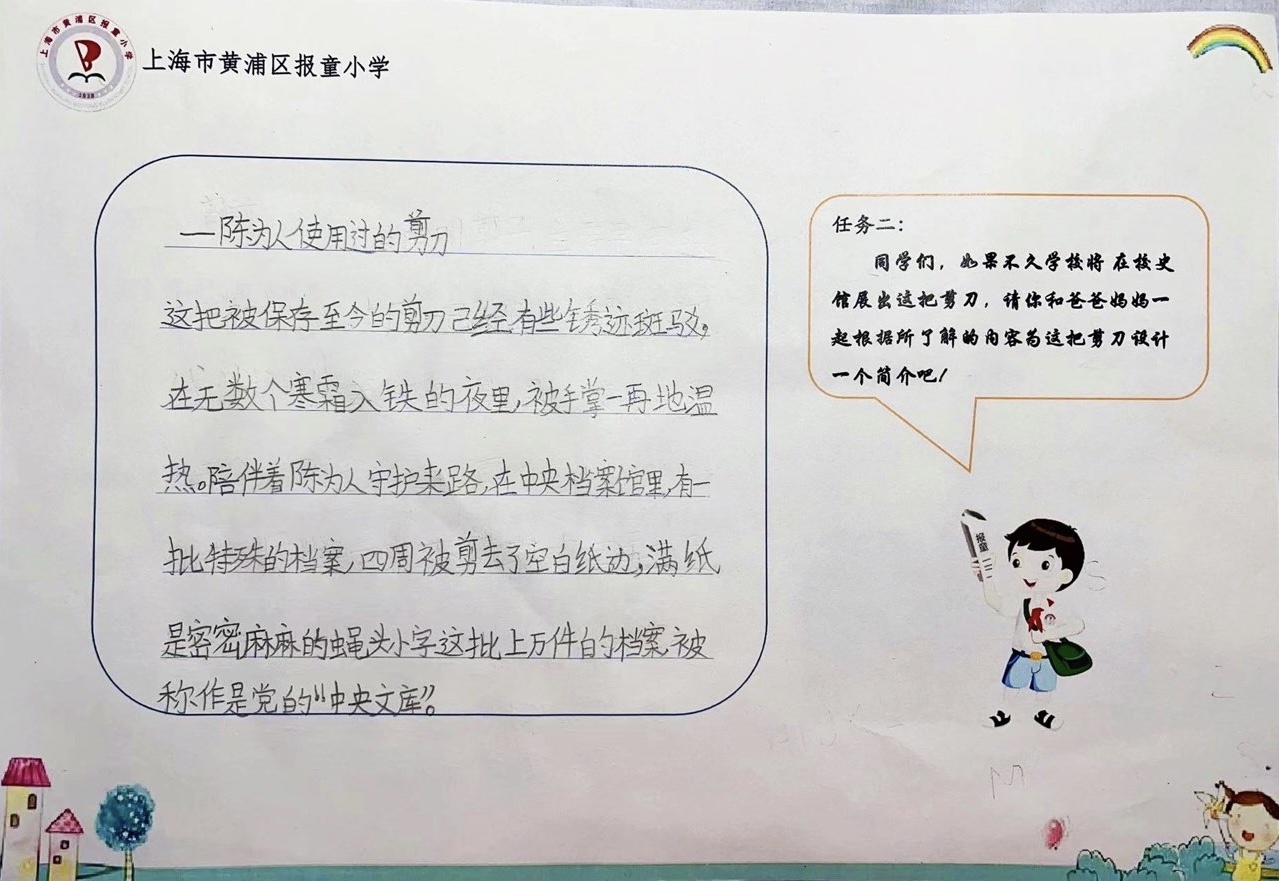 上海市黄浦区报童小学
1938
上海市黄浦区报童小学
——陈为人使用过的剪刀
这把被保存至今的剪刀已经有些锈迹斑驳,
在无数个寒霜入铁的夜里,被手掌一再地温
热。陪伴着陈为人守护来路,在中央档案馆里,有一
批特殊的档案,四周被剪去了空白纸边,满纸
是密密麻麻的蝇头小字这批上万件的档案,被
称作是党的“中央文库”。
任务二:
同学们,如果不久学校将在校史
馆展出这把剪刀,请你和爸爸妈妈一
起根据所了解的内容为这把剪刀设计
一个简介吧!
报童